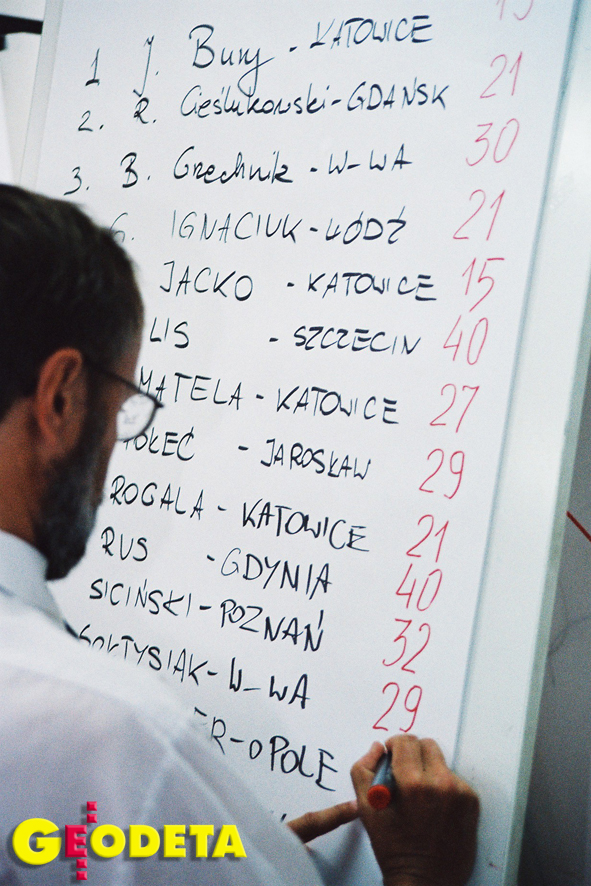 1 J. Bury - KATOWICE
2. R. Cieślukowski - GDAŃSK 21
3. B. Grechnik - W-WA 30
G. IGNACIUK - ŁÓDŹ 21
JACKO - KATOWICE 15
LIS - SZCZECIN 40
MATELA - KATOWICE 27
- JAROSŁAW 29
ROGALA - KATOWICE 21
RUS - GDYNIA 40
SICIŃSKI - POZNAŃ 32
SOŁTYSIAK - W-WA 29
ER - OPOLE
GEODETA